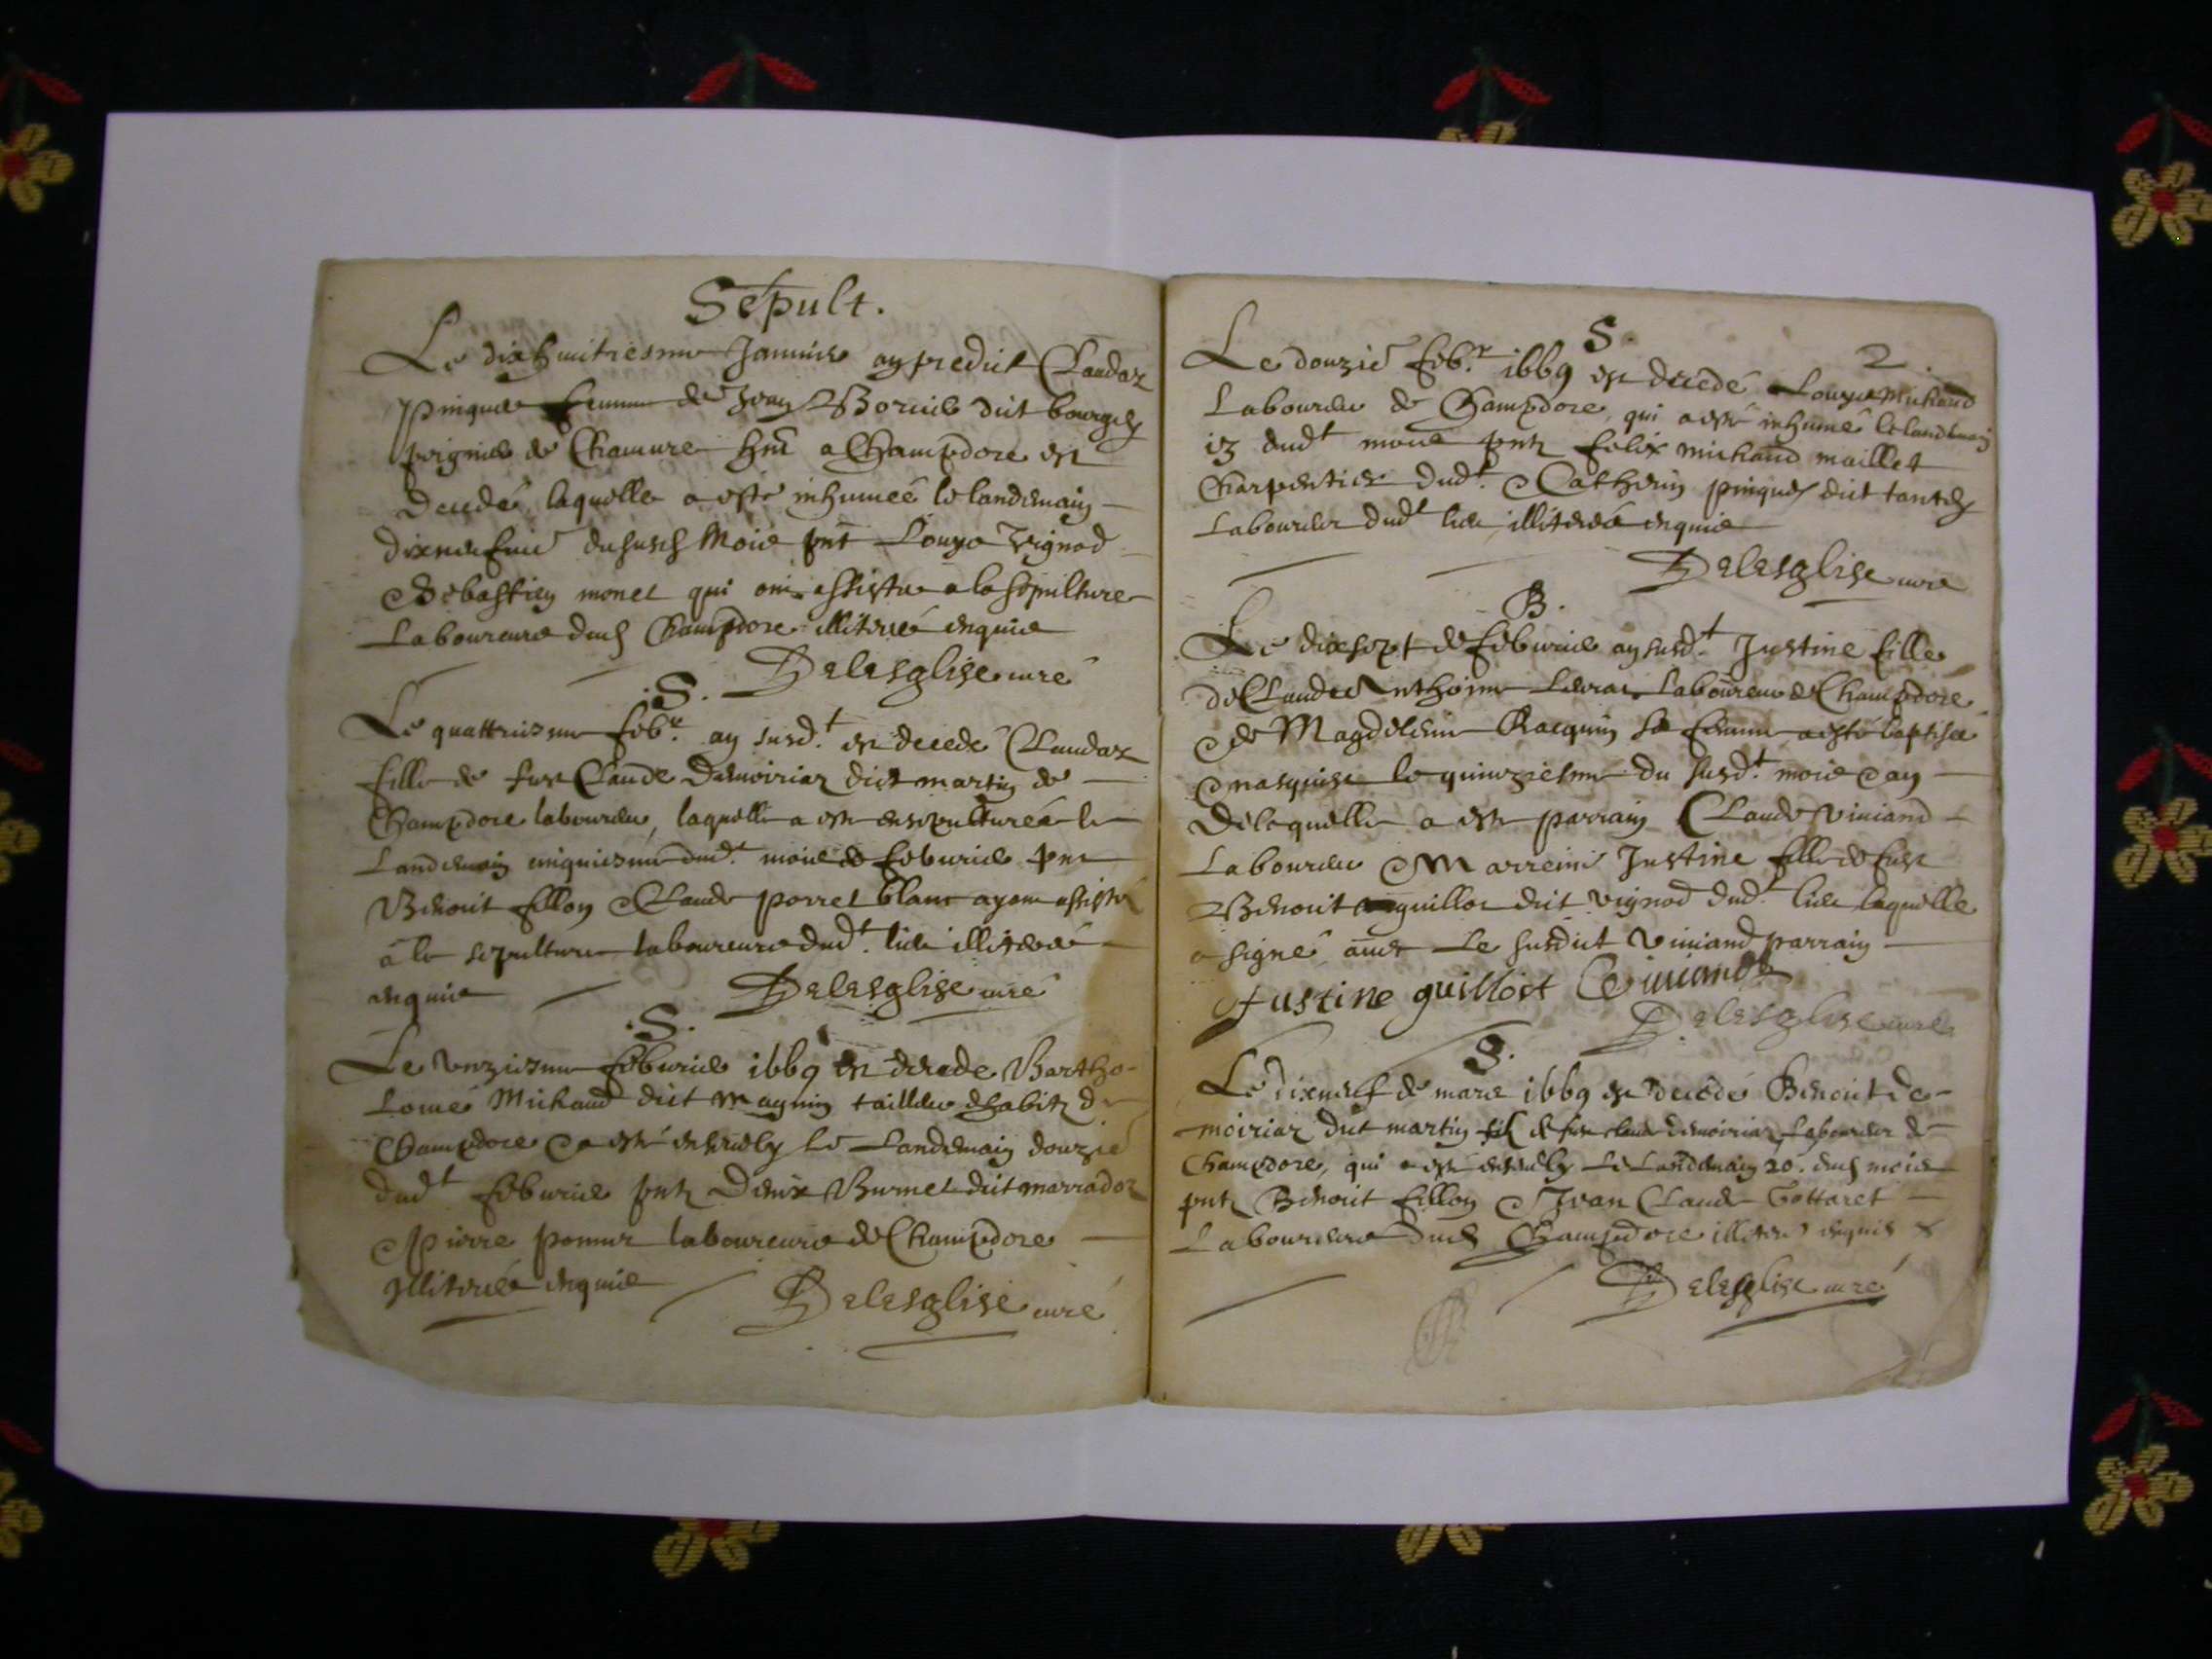 Sepult.
Le dixhuitiesme Januier an predict Claudaz
pinquet femme de Jean Borciet dict bourgeois
peignier de Chamure hnt a Champdore est
decedeé, laquelle a esté inhumeé le landemain
dixneufuie dususd. Mois pnt Louys Vignod
& Sebastien monet qui ont assisté a la sepulture
Laboureurs dud. Champdore illiterés enquis
Delesglise curé
.S.
Le quattriesme feb.r an susd.t est decedé Claudaz
fille de feu Claude Demoiriaz dict martin de
Champdore laboureur, laquelle a esté ensepultureé le
Landemain cinquiesme dud.t mois de feburier pnt
Benoit fillon & Claude porret blanc ayant assisté
à la sepulture laboureurs dud.t lieu illiterés
enquis
Delesglise curé
.S.
Le vnziesme feburier 1669 est decede Bartho-
lomé Michaud dict Magnin tailleur d'habitz de
Champdore & a esté enseuely le Landemain douzie
dud.t feburier pntz Denix Burnet dict marradoz
& Pierre pomier laboureurs de Champdore
illiterés enquis
Delesglise curé
S. 2
Le douzie feb.r 1669 est decedé Louys Michaud
Laboureur de Champdore, qui a esté inhumé le landemain
13 dud.t mois pntz felix michaud maillet
Charpentier dud.t & Catherin pinquet dict tantet
Laboureur dud.t lieu illiterés enquis
Delesglise curé
B.
Le dixsept de feburier an susd.t Justine fille
de Claude Anthoine Leuraz Laboureur de Champdore
& de Magdeleine Racquin sa femme a esté baptiseé
& nasquist le quinziesme du susd.t mois & an
De laquelle a esté parrain Claude Viuiand
Laboureur & Marreine Justine fille de feu
Benoit guillot dict vignod dud.t lieu laquelle
a signé auec Le susdict Viuiand parrain
Justine guillost C Viuiand
Delesglise curé
S.
Le dixneuf de mars 1669 est decedé Benoit de-
moiriaz dict martin filz de feu claude demoiriaz Laboureur de
Champdore, qui a esté enseuely Le Landemain 20. dud. mois
pntz Benoit fillon & Jean Claude Gottaret
Laboureurs dud. Champdore illiterés enquis &
Delesglise curé